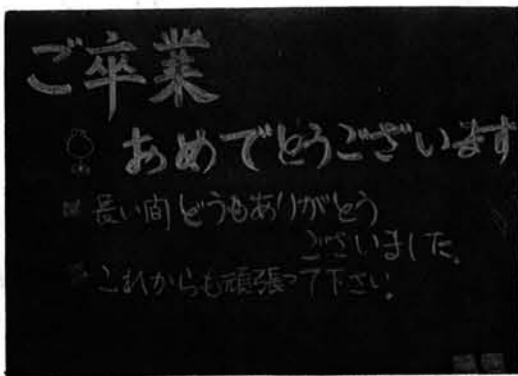 ご卒業
おめでとうございます
長い間どうもありがとう
ございました。
これからも頑張って下さい。